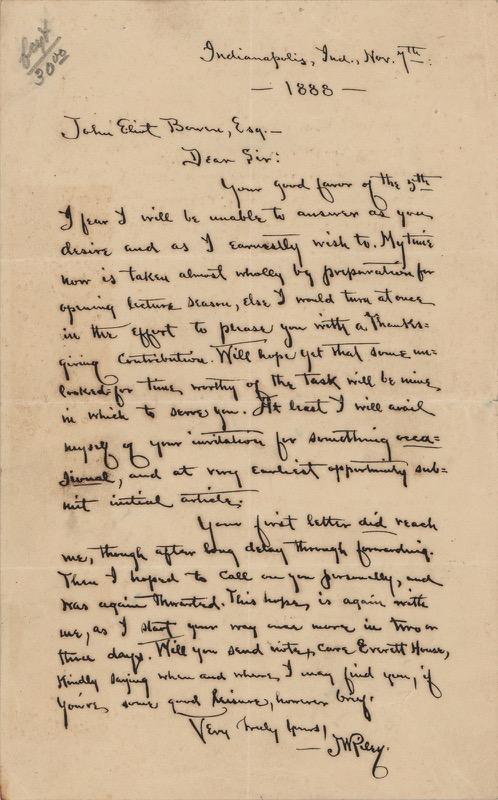 Sept
30⁰⁰
Indianapolis, Ind., Nov. 7th.
— 1888 —
John Eliot Bowen, Esq.—
Dear Sir:
Your good favor of the 5th
I fear I will be unable to answer as you
desire and as I earnestly wish to. My time
now is taken almost wholly by preparation for
opening lecture season, else I would turn at once
in the effort to please you with a Thanks=
giving Contribution. Will hope yet that some un=
looked-for time, worthy of the task will be mine,
in which to serve you. At least I will avail
myself of your invitation for something occa=
sional, and at very earliest opportunity sub=
mit initial article.
Your first letter did reach
me, though after long delay through forwarding.
Then I hoped to call on you personally, and
was again thwarted. This hope, is again with
me, as I start your way once more in two or
three days. Will you send note, care Everett House,
kindly saying when and where, I may find you, if
you've some good leisure, however brief.
Very truly yours,
— JWRiley.